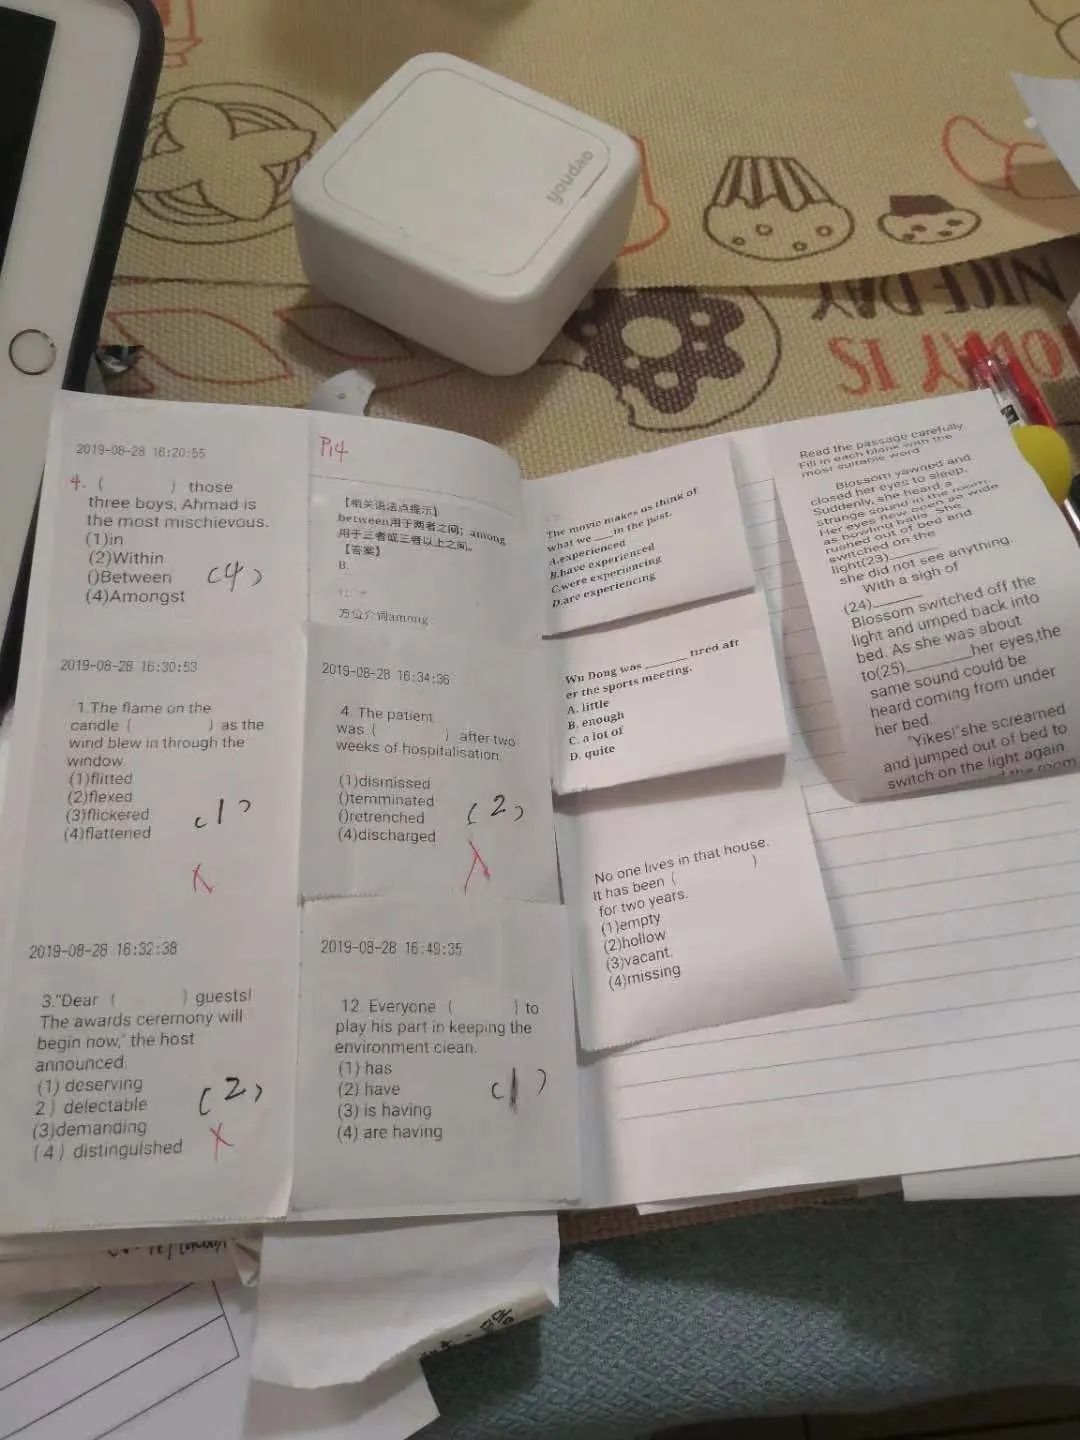 youdao
NICE DAY
TODAY IS
2019-08-28 16:20:55
4. ( ) those
three boys, Ahmad is
the most mischievous.
(1)in
(2)Within
()Between
(4)Amongst
(4)
P14
【相关语法点提示】
between用于两者之间；among
用于三者或三者以上之间。
【答案】
B.
方位介词among
2019-08-28 16:30:53
1.The flame on the
candle ( ) as the
wind blew in through the
window.
(1)flitted
(2)flexed
(3)flickered
(4)flattened
(1)
2019-08-28 16:34:36
4. The patient
was ( ) after two
weeks of hospitalisation.
(1)dismissed
()terminated
()retrenched
(4)discharged
(2)
2019-08-28 16:32:38
3."Dear ( ) guests!
The awards ceremony will
begin now," the host
announced.
(1) deserving
2) delectable
(3)demanding
(4) distinguished
(2)
2019-08-28 16:49:35
12. Everyone ( ) to
play his part in keeping the
environment clean.
(1) has
(2) have
(3) is having
(4) are having
(1)
The movie makes us think of
what we ___in the past.
A.experienced
B.have experienced
C.were experiencing
D.are experiencing
Wu Dong was _______ tired aft
er the sports meeting.
A. little
B. enough
C. a lot of
D. quite
No one lives in that house.
It has been ( )
for two years.
(1)empty
(2)hollow
(3)vacant.
(4)missing
Read the passage carefully.
Fill in each blank with the
most suitable word
Blossom yawned and
closed her eyes to sleep.
Suddenly, she heard a
strange sound in the room.
Her eyes flew open as wide
as bowling balls. She
rushed out of bed and
switched on the
light(23)______
she did not see anything.
With a sigh of
(24)______
Blossom switched off the
light and umped back into
bed. As she was about
to(25)________her eyes,the
same sound could be
heard coming from under
her bed.
"Yikes!"she screamed
and jumped out of bed to
switch on the light again
the room